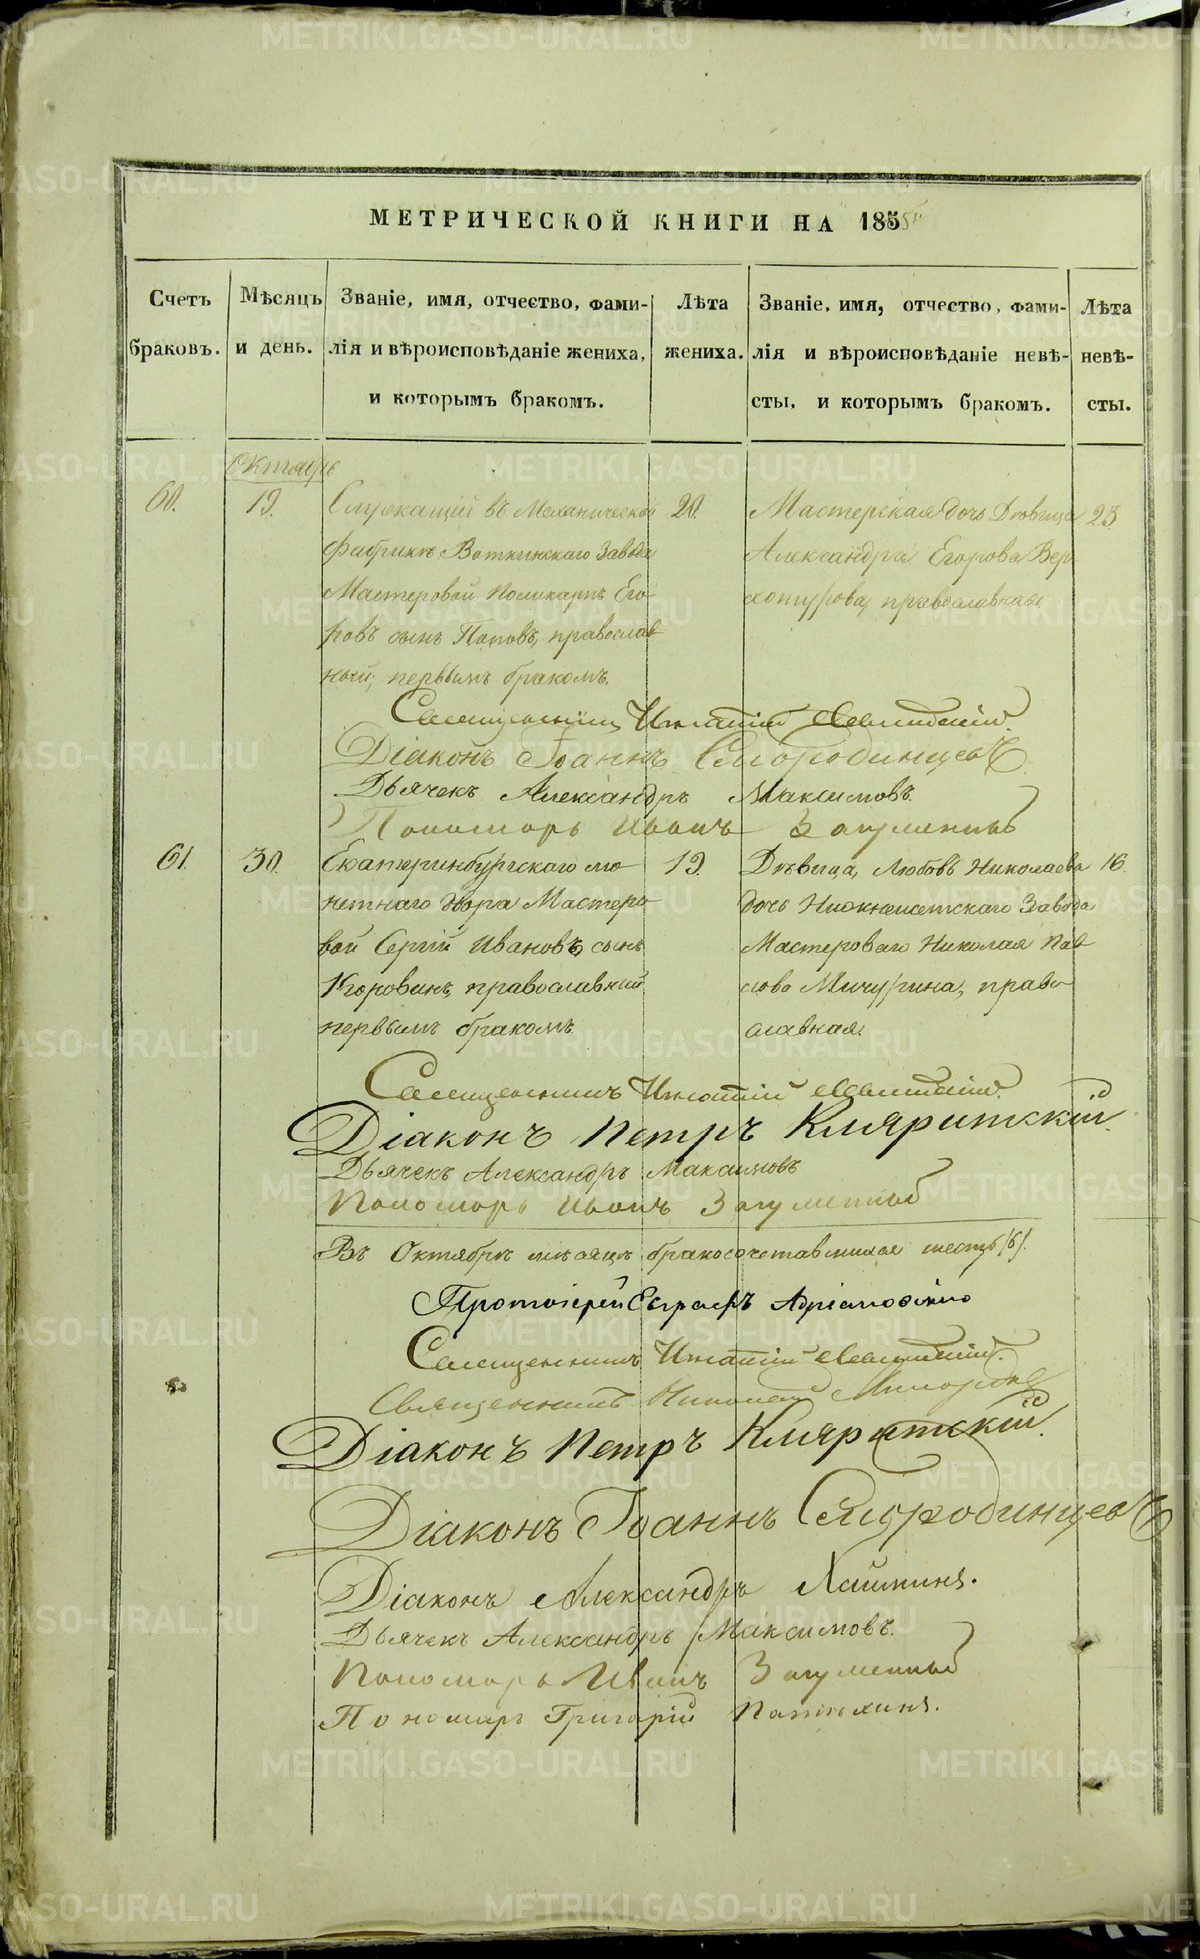 МЕТРИЧЕСКОЙ КНИГИ НА 1855
Счетъ браковъ.
Мѣсяцъ и день.
Званіе, имя, отчество, фами-
лія и вѣроисповѣданіе жениха,
и которымъ бракомъ.
Лѣта
жениха.
Званіе, имя, отчество, фами-
лія и вѣроисповѣданіе невѣ-
сты, и которымъ бракомъ.
Лѣта
невѣ-
сты.
Октябрь
60.
19.
Служащій въ Механической
фабрикѣ Воткинскаго Завода
Мастеровой Поликарпъ Его-
ровъ сынъ Поповъ, православ-
ный, первымъ бракомъ.
20.
Мастерская дочь Дѣвица
Александра Егорова Вер-
хотурова, православная
23.
Священникъ Игнатій
Діаконъ Іоаннъ Смородинцевъ
Дьячекъ Александръ Максимовъ.
Пономарь Иванъ Загуменный
61.
30.
Екатеринбургскаго мо-
нетнаго двора Мастеро-
вой Сергій Ивановъ, сынъ
Коровинъ, православный
первымъ бракомъ
19.
Дѣвица, Любовь Николаева
дочь Нижнеисетскаго Завода
Мастероваго Николая Пав-
лова Мичурина, право-
славная.
16.
Священникъ Игнатій
Діаконъ Петръ Кляритскій.
Дьячекъ Александръ Максимовъ
Пономарь Иванъ Загуменный
Въ Октябрѣ мѣсяцѣ бракосочетавшихся шесть /6/.
Протоіерей Евграфъ
Священникъ Игнатій
Священникъ Николай
Діаконъ Петръ Кляритскій.
Діаконъ Іоаннъ Смородинцевъ
Діаконъ Александръ Хайминъ.
Дьячекъ Александръ Максимовъ.
Пономарь Иванъ Загуменный
Пономарь Григорій Патюхинъ.
METRIKI.GASO-URAL.RU